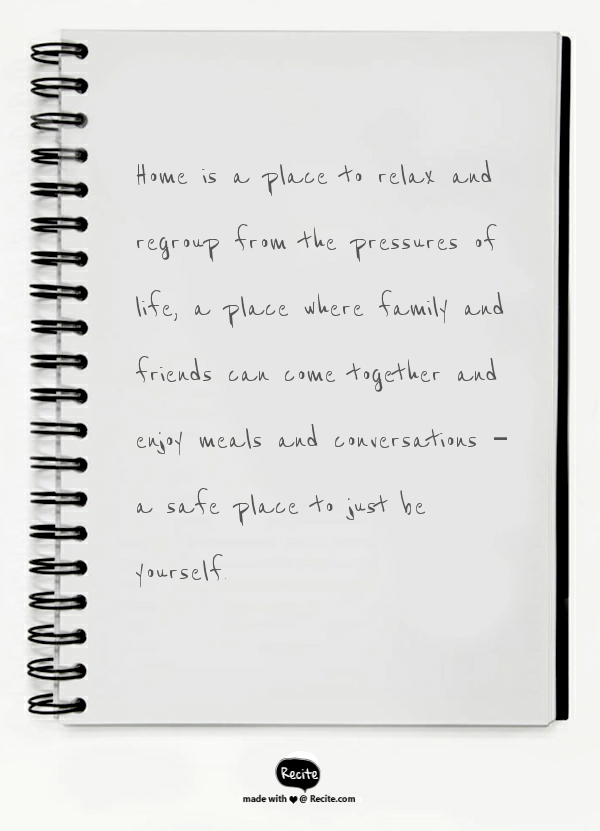 Home is a place to relax and
regroup from the pressures of
life, a place where family and
friends can come together and
enjoy meals and conversations –
a safe place to just be
yourself.
Recite
made with ♥ @ Recite.com